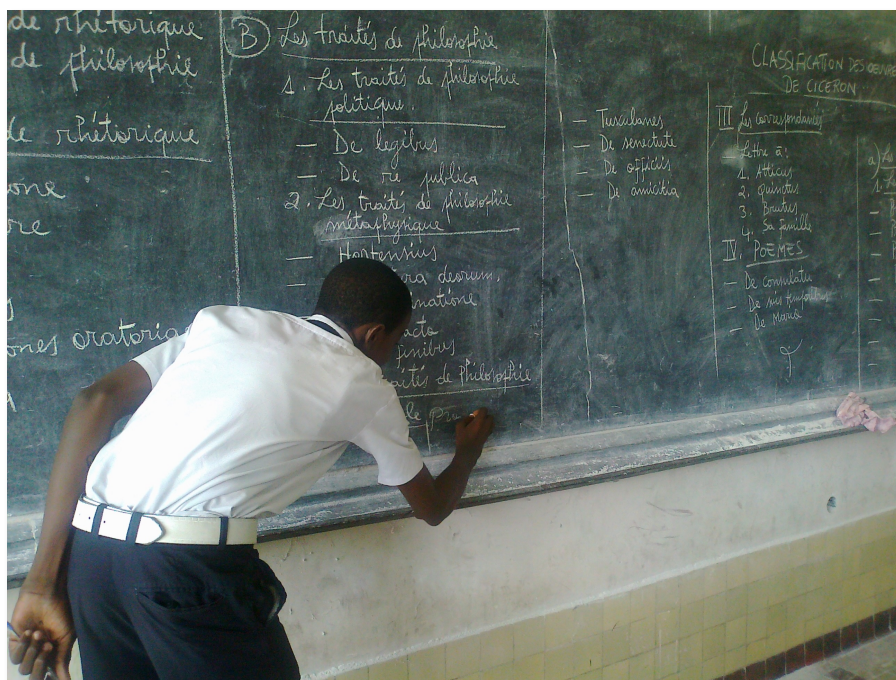 de rhétorique
de philosophie
de rhétorique
one
re
ones oratoria
B Les traités de philosophie
1. Les traités de philosophie
politique.
– De legibus
– De re publica
2. Les traités de philosophie
métaphysique
– Hortensius
deorum.
finibus
de Philosophie
– Tusculanes
– De senectute
– De officiis
– De amicitia
CLASSIFICATION DES OEUVRES
DE CICERON
III Les correspondances
Lettre à:
1. Atticus
2. Quinctus
3. Brutus
4. Sa famille
IV. POËMES
– De consulatu
– De suis temporibus
– De Mario
a)